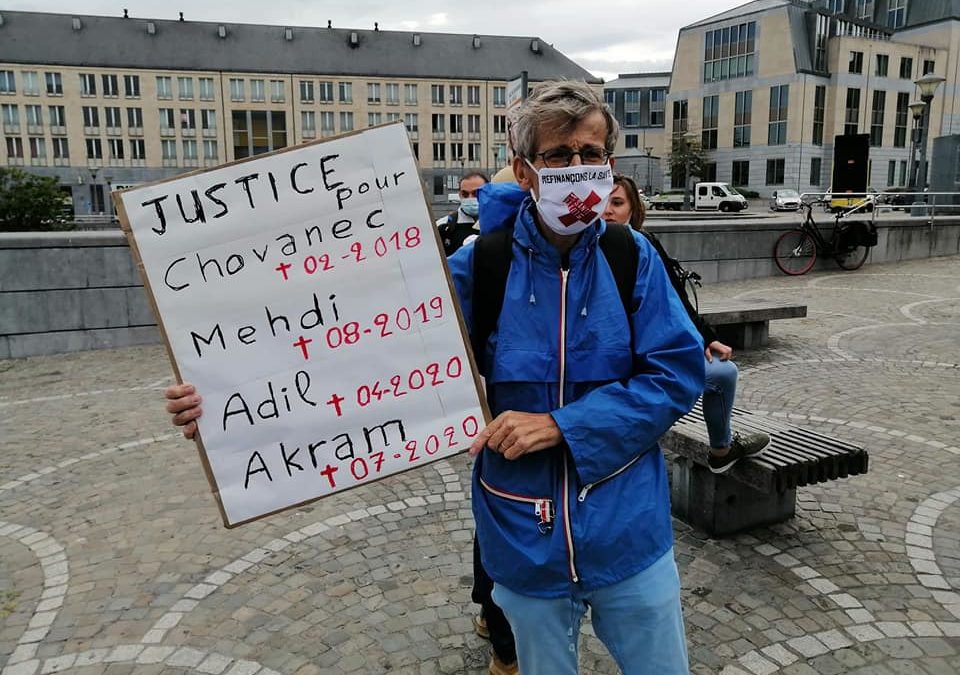 JUSTICE
pour
Chovanec
† 02-2018
Mehdi
† 08-2019
Adil † 04-2020
Akram
† 07-2020
REFINANÇONS LA SANTÉ